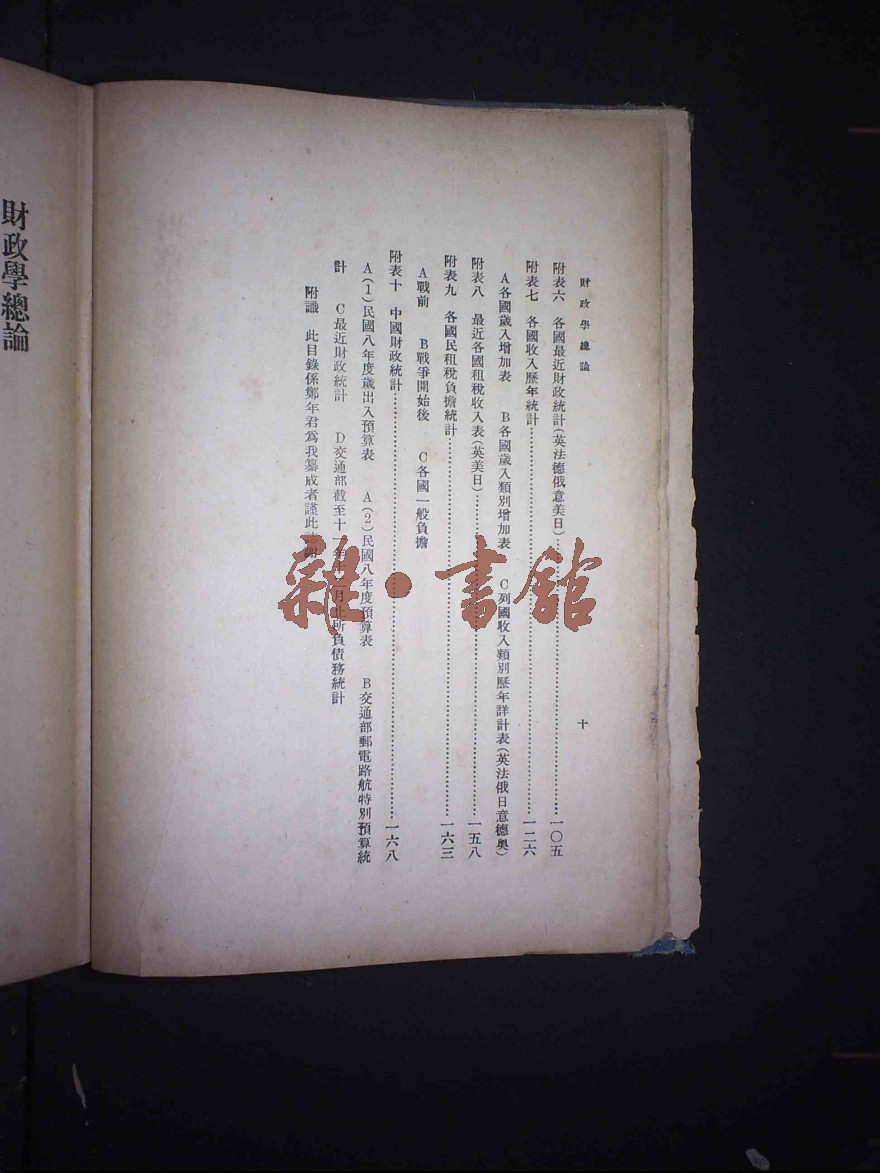 財政學總論
十
附表六　各國最近財政統計(英法德俄意美日)……一〇五
附表七　各國收入歷年統計……一二六
A各國歲入增加表　B各國歲入類別增加表　C列國收入類別歷年詳計表(英法俄日意德奧)
附表八　最近各國租稅收入表(英美日)……一五八
附表九　各國民租稅負擔統計……一六三
A戰前　B戰爭開始後　C各國一般負擔
附表十　中國財政統計……一六八
A(1)民國八年度歲出入預算表　A(2)民國八年度預算表　B交通部郵電路航特別預算統
計　C最近財政統計　D交通部截至十一年十一月止所負債務統計
附識　此目錄係鄭年君爲我纂成者謹此
財政學總論
雜·書館